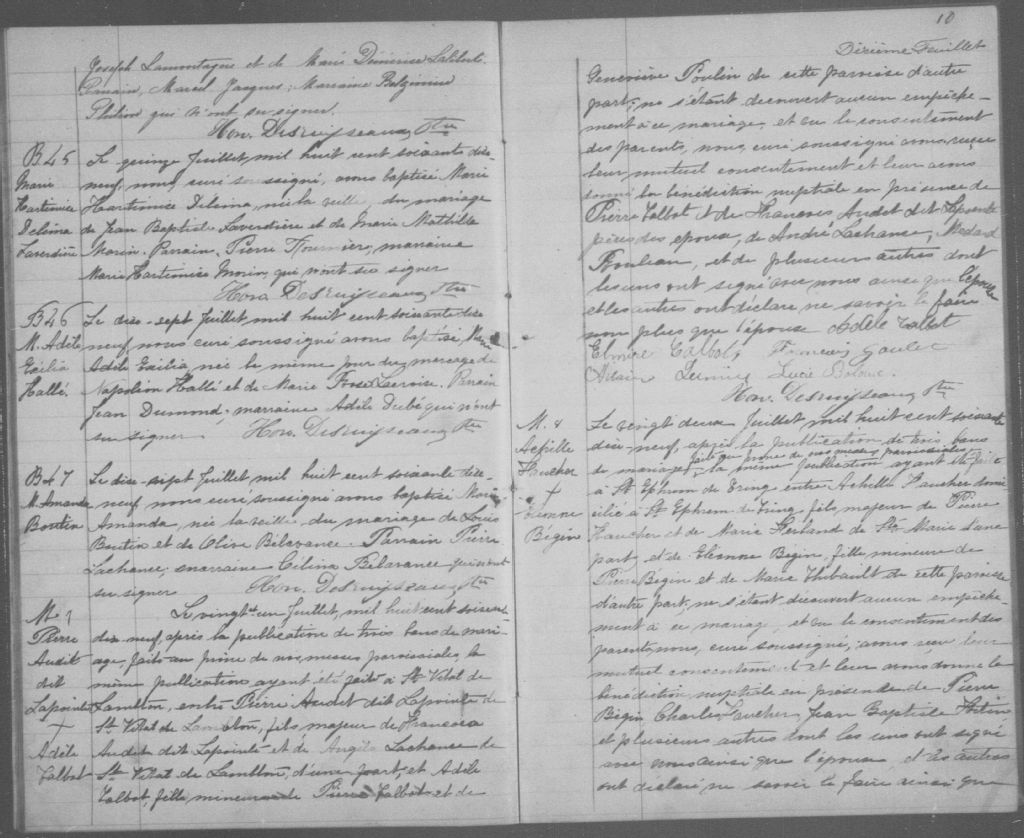 Joseph Lamontagne et de Marie Démerise Laliberté
Parrain, Marcel Jacques; Marraine
qui n'ont su signer.
Hon. Desruisseaux Ptre
B45
Marie
Hartemise
Delcina
Laverdière
Le quinze Juillet, mil huit cent soixante dix-
neuf, nous curé soussigné, avons baptisé Marie
Hartemise Delcina, née la veille, du mariage
de Jean Baptiste Laverdière et de Marie Mathilde
Morin. Parrain, Pierre Fournier, marraine
Marie Hartemise Morin, qui n'ont su signer
Hon. Desruisseaux Ptre
B46
M. Adèle
Exilia
Hallé.
Le dix-sept Juillet, mil huit cent soixante dix
neuf, nous curé soussigné avons baptisé Marie
Adèle Exilia née le même jour du mariage de
Napoléon Hallé et de Marie Rose Lacroix. Parrain
Jean Dumond, marraine Adèle Dubé qui n'ont
su signer. Hon. Desruisseaux Ptre
B47
M. Amanda
Boutin
Le dix-sept Juillet mil huit cent soixante dix
neuf, nous curé soussigné avons baptisé Marie
Amanda, née la veille, du mariage de Louis
Boutin et de Olive Bélavance. Parrain Pierre
Lachance, marraine Célina Bélavance qui n'ont
su signer Hon. Desruisseaux Ptre
M. 7
Pierre
Audit
dit
Lapointe
+
Adèle
Talbot
Le vingt et un Juillet, mil huit cent soixante
dix neuf, après la publication de trois bans de mari-
age, faits au prône de nos messes paroissiales, la
même publication ayant été faite à St Vital de
Lambton, entre Pierre Audet dit Lapointe de
St Vital de Lambton, fils majeur de Francois
Audet dit Lapointe et de Angèle Lachance de
St Vital de Lambton, d'une part, et Adèle
Talbot, fille mineure de Pierre Talbot et de
10
Dixième Feuillet
Geneviève Poulin de cette paroisse d'autre
part; ne s'étant découvert aucun empêche-
ment à ce mariage, et vu le consentement
des parents, nous, curé soussigné avons reçu
leur mutuel consentement et leur avons
donné la bénédiction nuptiale en présence de
Pierre Talbot et de Francois Audet dit Lapointe
pères des époux, de André Lachance, Médard
Pouleau, et de plusieurs autres dont
les uns ont signé avec nous ainsi que l'épouse
et les autres ont déclaré ne savoir le faire
non plus que l'épouse Adèle Talbot
Elmire Talbot, Francois Goulet
Lucie Bilodeau.
Hon. Desruisseaux Ptre
M. 8
Achille
Faucher
+
Éleonne
Bégin
Le vingt deux Juillet mil huit cent soixante
dix-neuf, après la publication de trois bans
faits au prône de nos messes paroissiales
de mariage, la même publication ayant été faite
à St Ephrem de Tring entre Achille Faucher domi-
cilié à St Ephrem de Tring, fils majeur de Pierre
Faucher et de Marie Ferland de Ste Marie d'une
part, et de Eléonne Bégin, fille mineure de
Pierre Bégin et de Marie Thibault de cette paroisse
d'autre part, ne s'étant découvert aucun empêche-
ment à ce mariage, et vu le consentement des
parents, nous, curé soussigné, avons reçu leur
mutuel consentement et leur avons donné la
bénédiction nuptiale en présence de Pierre
Bégin Charles Faucher, Jean Baptiste
et plusieurs autres dont les uns ont signé
avec nous ainsi que l'épouse, d'as autres
ont déclaré ne savoir le faire ainsi que